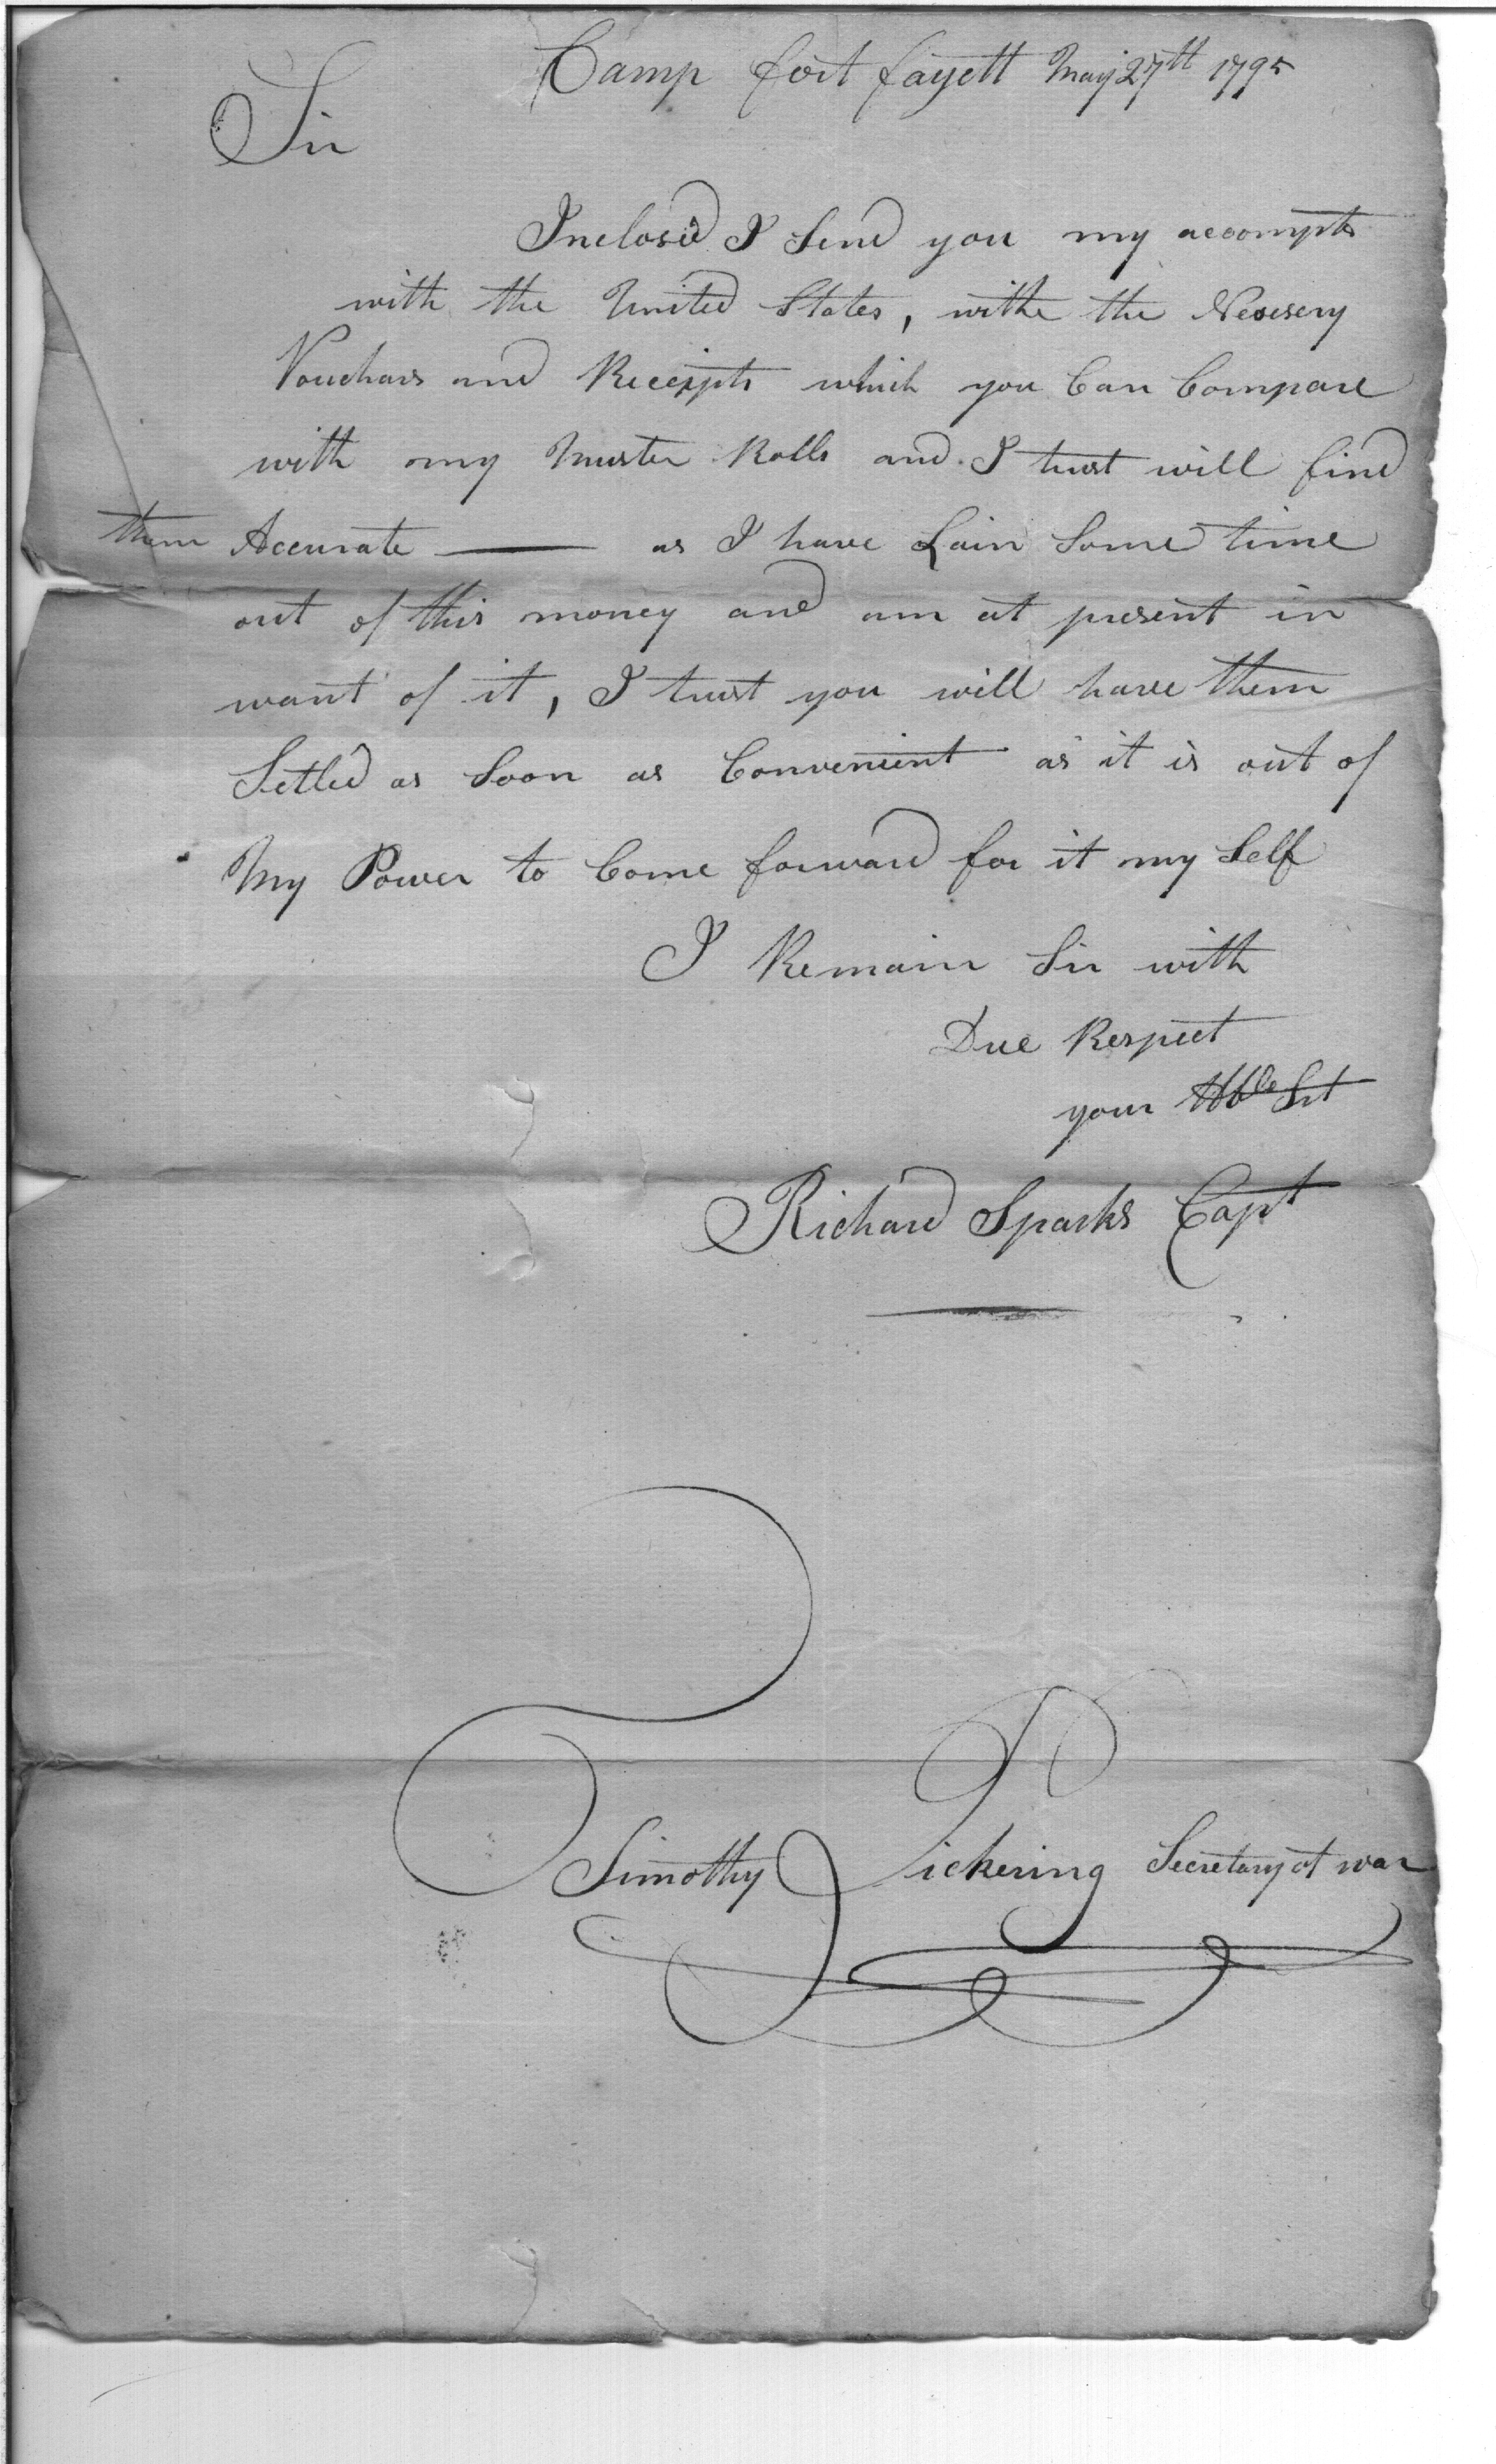 Camp fort fayett May 27th 1795
Sir
Inclosed I Send you my accompts
with the United States, withe the Nesesery
Vouchars and Receipts which you Can Compare
with my Muster Rolls and I trust will find
them Accurate — as I have Lain Some time
out of this money and am at present in
want of it, I trust you will have them
Setled as Soon as Convenient as it is out of
My Power to Come forward for it my Self
I Remain Sir with
Due Respect
your Hble Svt
Richard Sparks Capt
Timothy Pickering Secretary of war